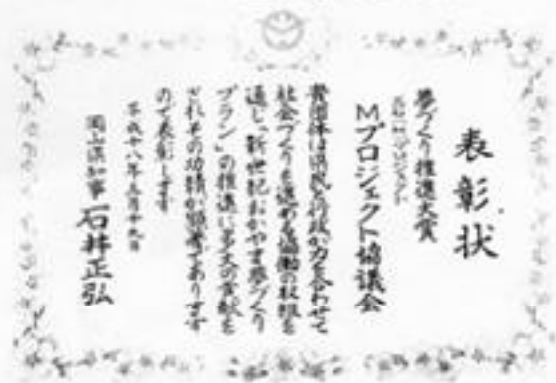 表彰状
夢づくり推進大賞
Mプロジェクト協議会
貴団体は県民と行政が力を合わせて
社会づくりを進める協働の取組を
通じ「新世紀おかやま夢づくり
プラン」の推進に多大の貢献を
されその功績が顕著であります
ので表彰します
平成十八年三月十九日
岡山県知事 石井正弘